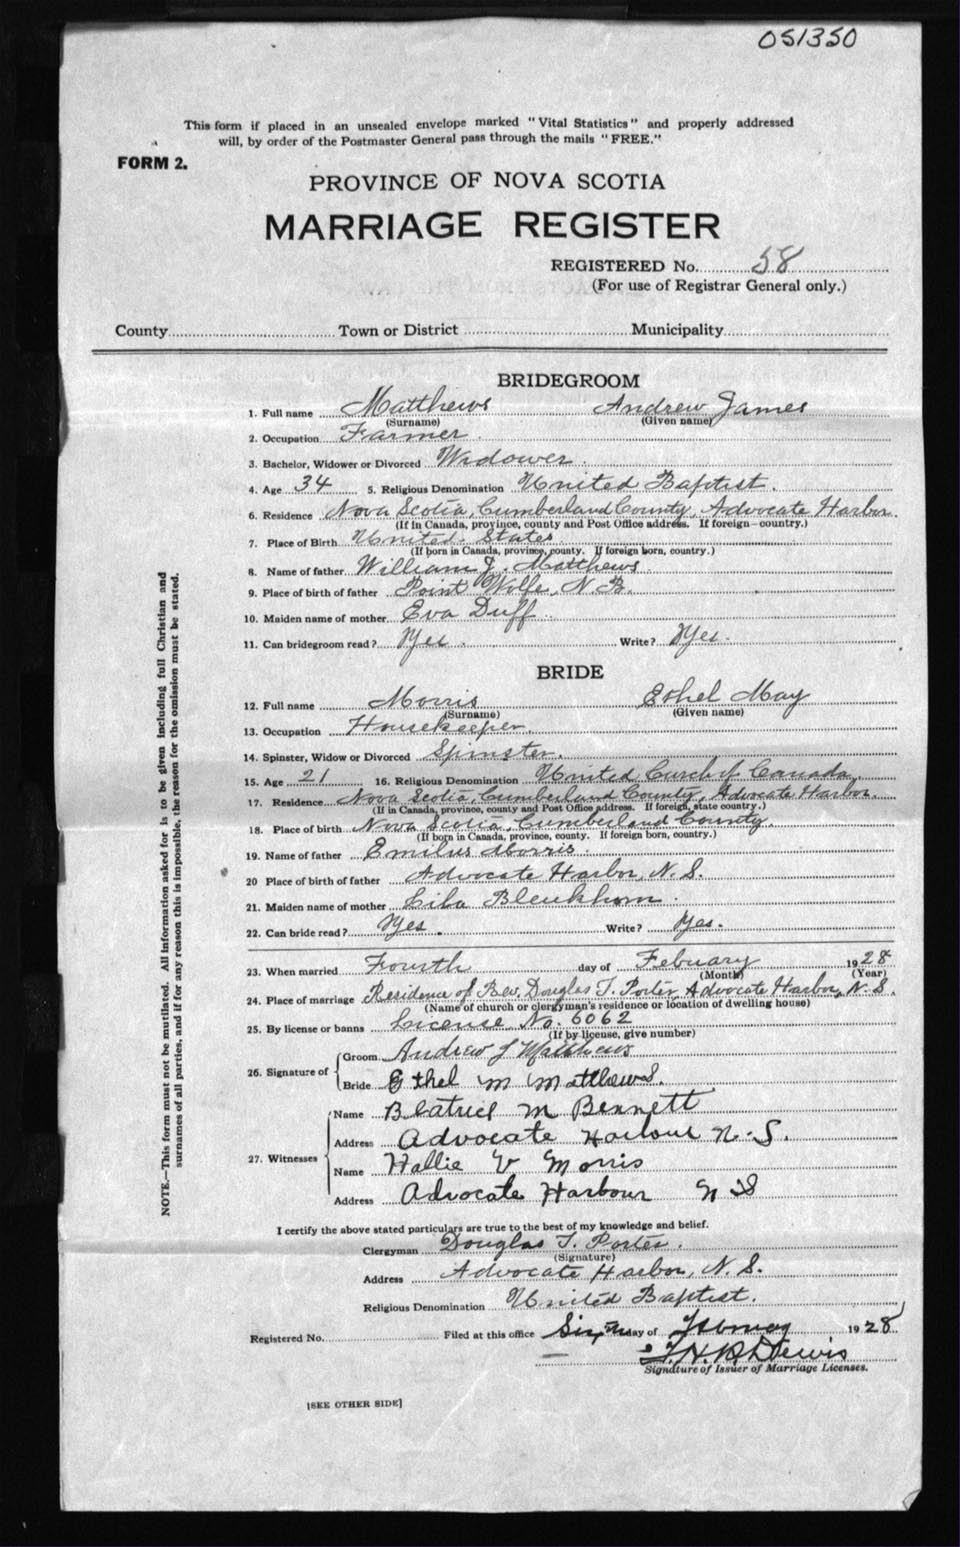 051350
This form if placed in an unsealed envelope marked "Vital Statistics" and properly addressed
will, by order of the Postmaster General pass through the mails "FREE."
FORM 2.
PROVINCE OF NOVA SCOTIA
MARRIAGE REGISTER
REGISTERED No. 58
(For use of Registrar General only.)
County Town or District Municipality
BRIDEGROOM
1. Full name Matthews Andrew James
(Surname) (Given name)
2. Occupation Farmer
3. Bachelor, Widower or Divorced Widower
4. Age 34 5. Religious Denomination United Baptist.
6. Residence Nova Scotia, Cumberland County, Advocate Harbor.
(If in Canada, province, county and Post Office address. If foreign—country.)
7. Place of Birth United States
(If born in Canada, province, county. If foreign born, country.)
8. Name of father William J. Matthews
9. Place of birth of father Point Wolfe, N B.
10. Maiden name of mother Eva Duff
11. Can bridegroom read? Yes. Write? Yes.
BRIDE
12. Full name Morris Ethel May
(Surname) (Given name)
13. Occupation Housekeeper.
14. Spinster, Widow or Divorced Spinster.
15. Age 21 16. Religious Denomination United Curch of Canada,
17. Residence Nova Scotia, Cumberland County, Advocate Harbor.
(If in Canada, province, county and Post Office address. If foreign, state country.)
18. Place of birth Nova Scotia, Cumberland County.
(If born in Canada, province, county. If foreign born, country.)
19. Name of father Emilus Morris.
20 Place of birth of father Advocate Harbor, N. S.
21. Maiden name of mother Lila Blenkhorn.
22. Can bride read? Yes. Write? Yes.
23. When married Fourth day of Febuary 1928
(Month) (Year)
24. Place of marriage Residence of Rev, Douglas T. Porter, Advocate Harbor, N. S.
(Name of church or clergyman's residence or location of dwelling house)
25. By license or banns License No. 6062
(If by license, give number)
26. Signature of Groom Andrew J Matthews
Bride Ethel M Matthews.
27. Witnesses Name Beatrice M Bennett
Address Advocate Harbour N. S.
Name Hallie V Morris
Address Advocate Harbour N S
I certify the above stated particulars are true to the best of my knowledge and belief.
Clergyman Douglas T. Porter.
(Signature)
Address Advocate Harbor, N. S.
Religious Denomination United Baptist.
Registered No. Filed at this office Sixth day of February 1928
Signature of Issuer of Marriage Licenses.
[SEE OTHER SIDE]
NOTE.—This form must not be mutilated. All information asked for is to be given including full Christian and
surnames of all parties, and if for any reason this is impossible, the reason for the omission must be stated.